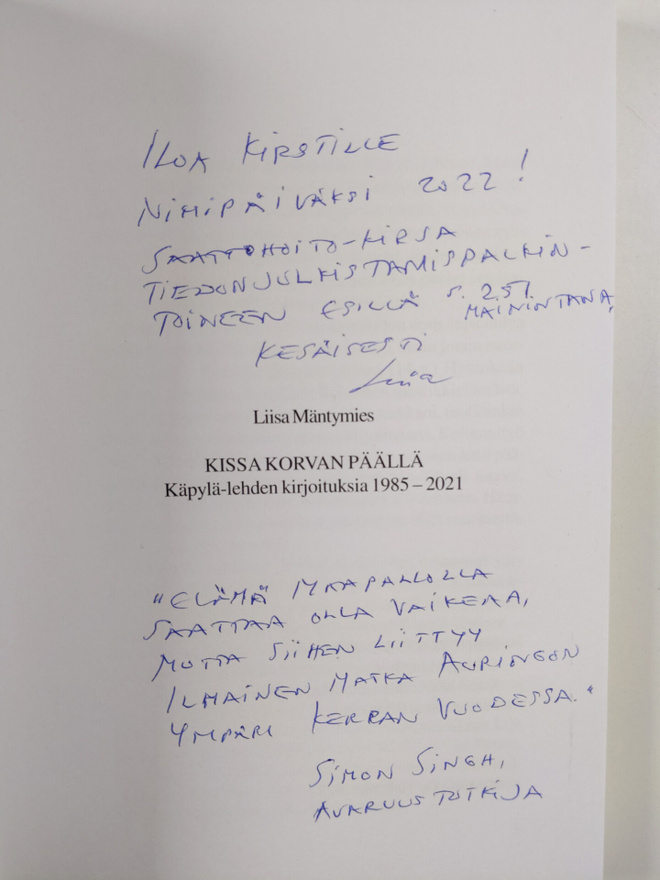 ILOA KIRSTILLE
NIMIPÄIVÄKSI 2022!
SAATTOHOITO-KIRSA
TIEDONJULKISTAMISPALKIN-
TOINEEN ESILLÄ s. 251.
MAININTANA,
KESÄISESTI
Liisa
Liisa Mäntymies
KISSA KORVAN PÄÄLLÄ
Käpylä-lehden kirjoituksia 1985 – 2021
"ELÄMÄ MAAPALLOLLA
SAATTAA OLLA VAIKEAA,
MUTTA SIIHEN LIITTYY
ILMAINEN MATKA AURINGON
YMPÄRI KERRAN VUODESSA."
SIMON SINGH,
AVARUUSTUTKIJA